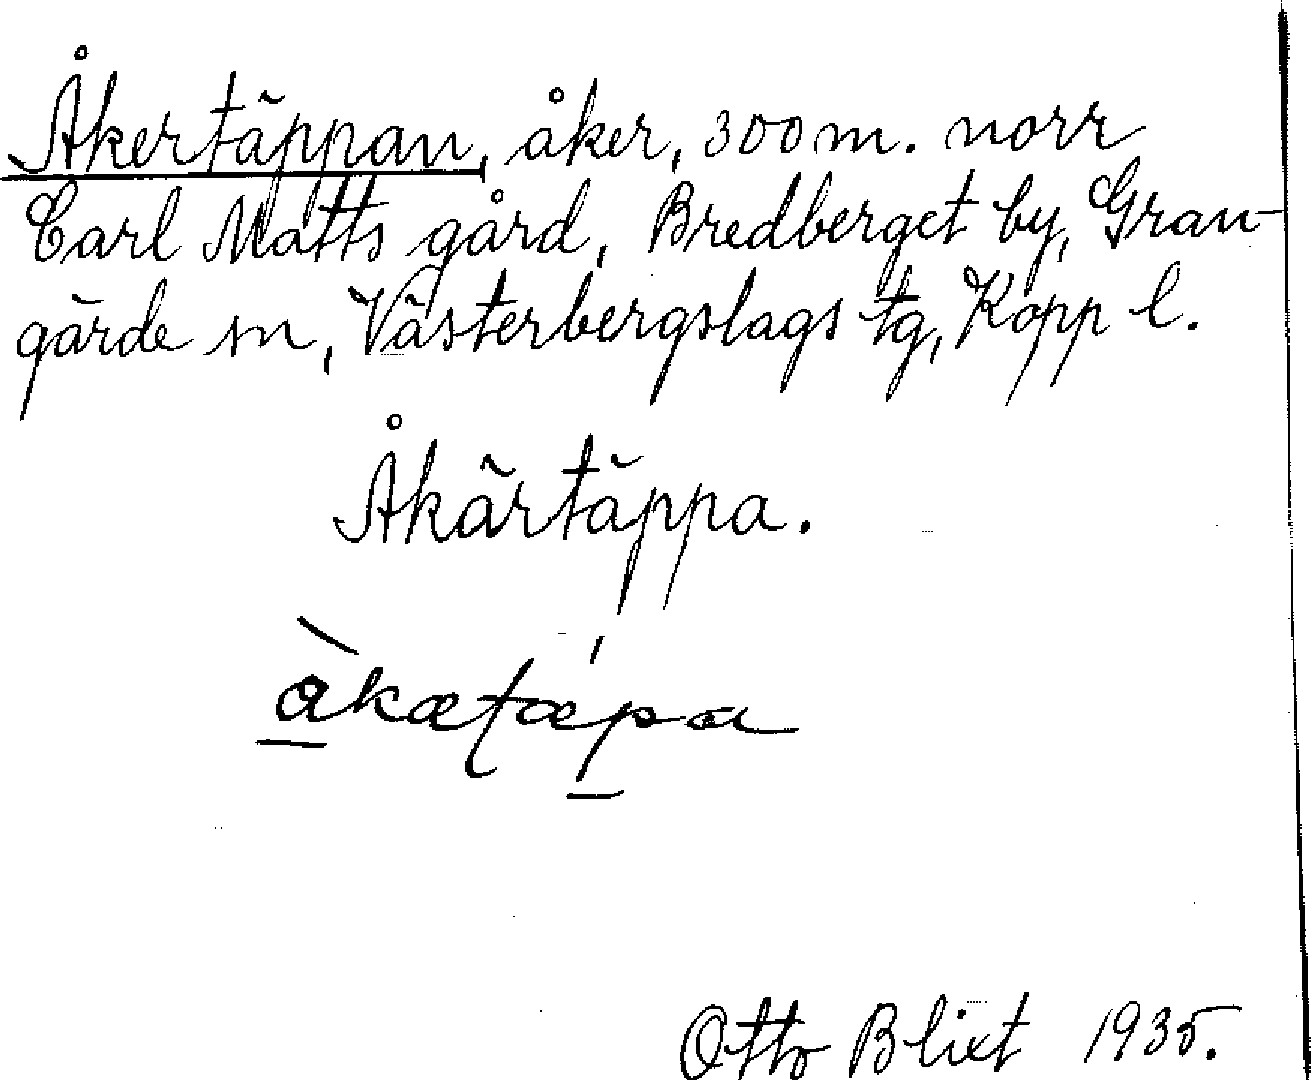 Åkertäppan, åker, 300 m. norr
Carl Matts gård, Bredberget by, Gran-
gärde sn, Västerbergslags tg, Kopp l.
Åkärtäppa.
åkætæpa
Otto Blixt 1935.